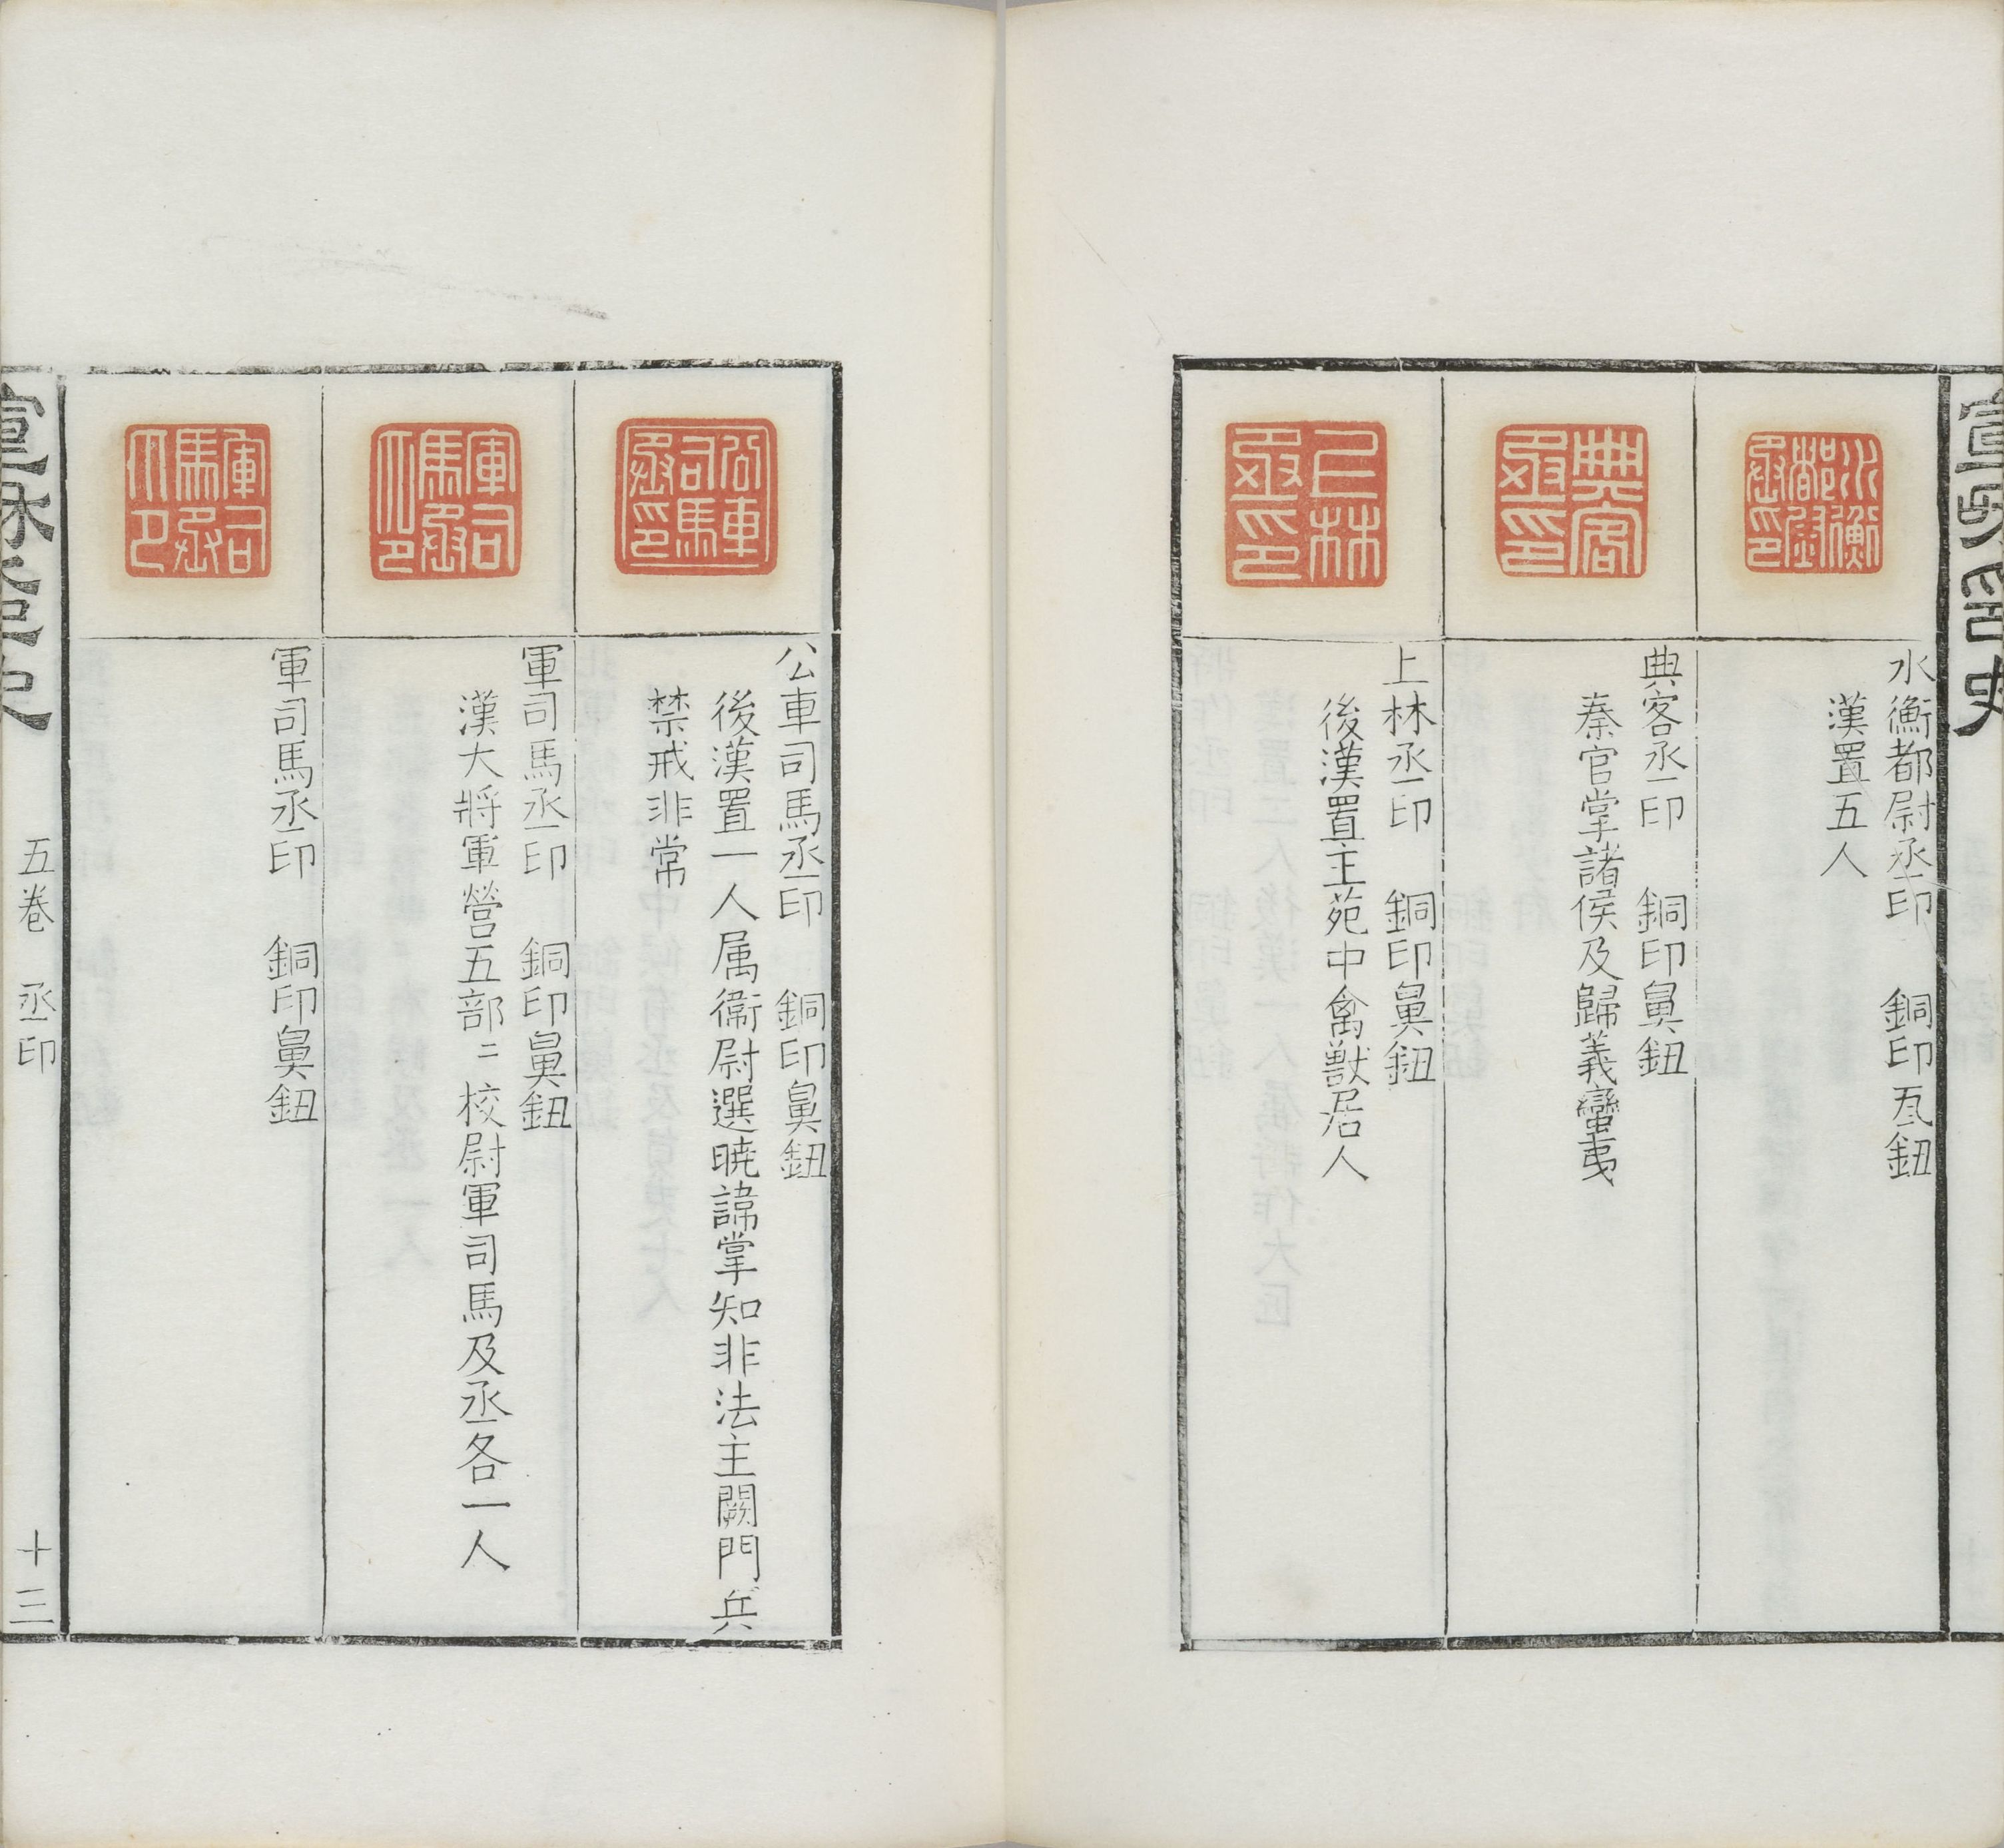 水衡都尉丞印 銅印瓦鈕
漢置五人
典客丞印 銅印鼻鈕
秦官掌諸侯及歸義蠻夷
上林丞印 銅印鼻鈕
後漢置主苑中禽獸居人
公車司馬丞印 銅印鼻鈕
後漢置一人属衛尉選曉諱掌知非法主闕門兵
禁戒非常
軍司馬丞印 銅印鼻鈕
漢大將軍營五部二校尉軍司馬及丞各一人
軍司馬丞印 銅印鼻鈕
五卷 丞印 十三